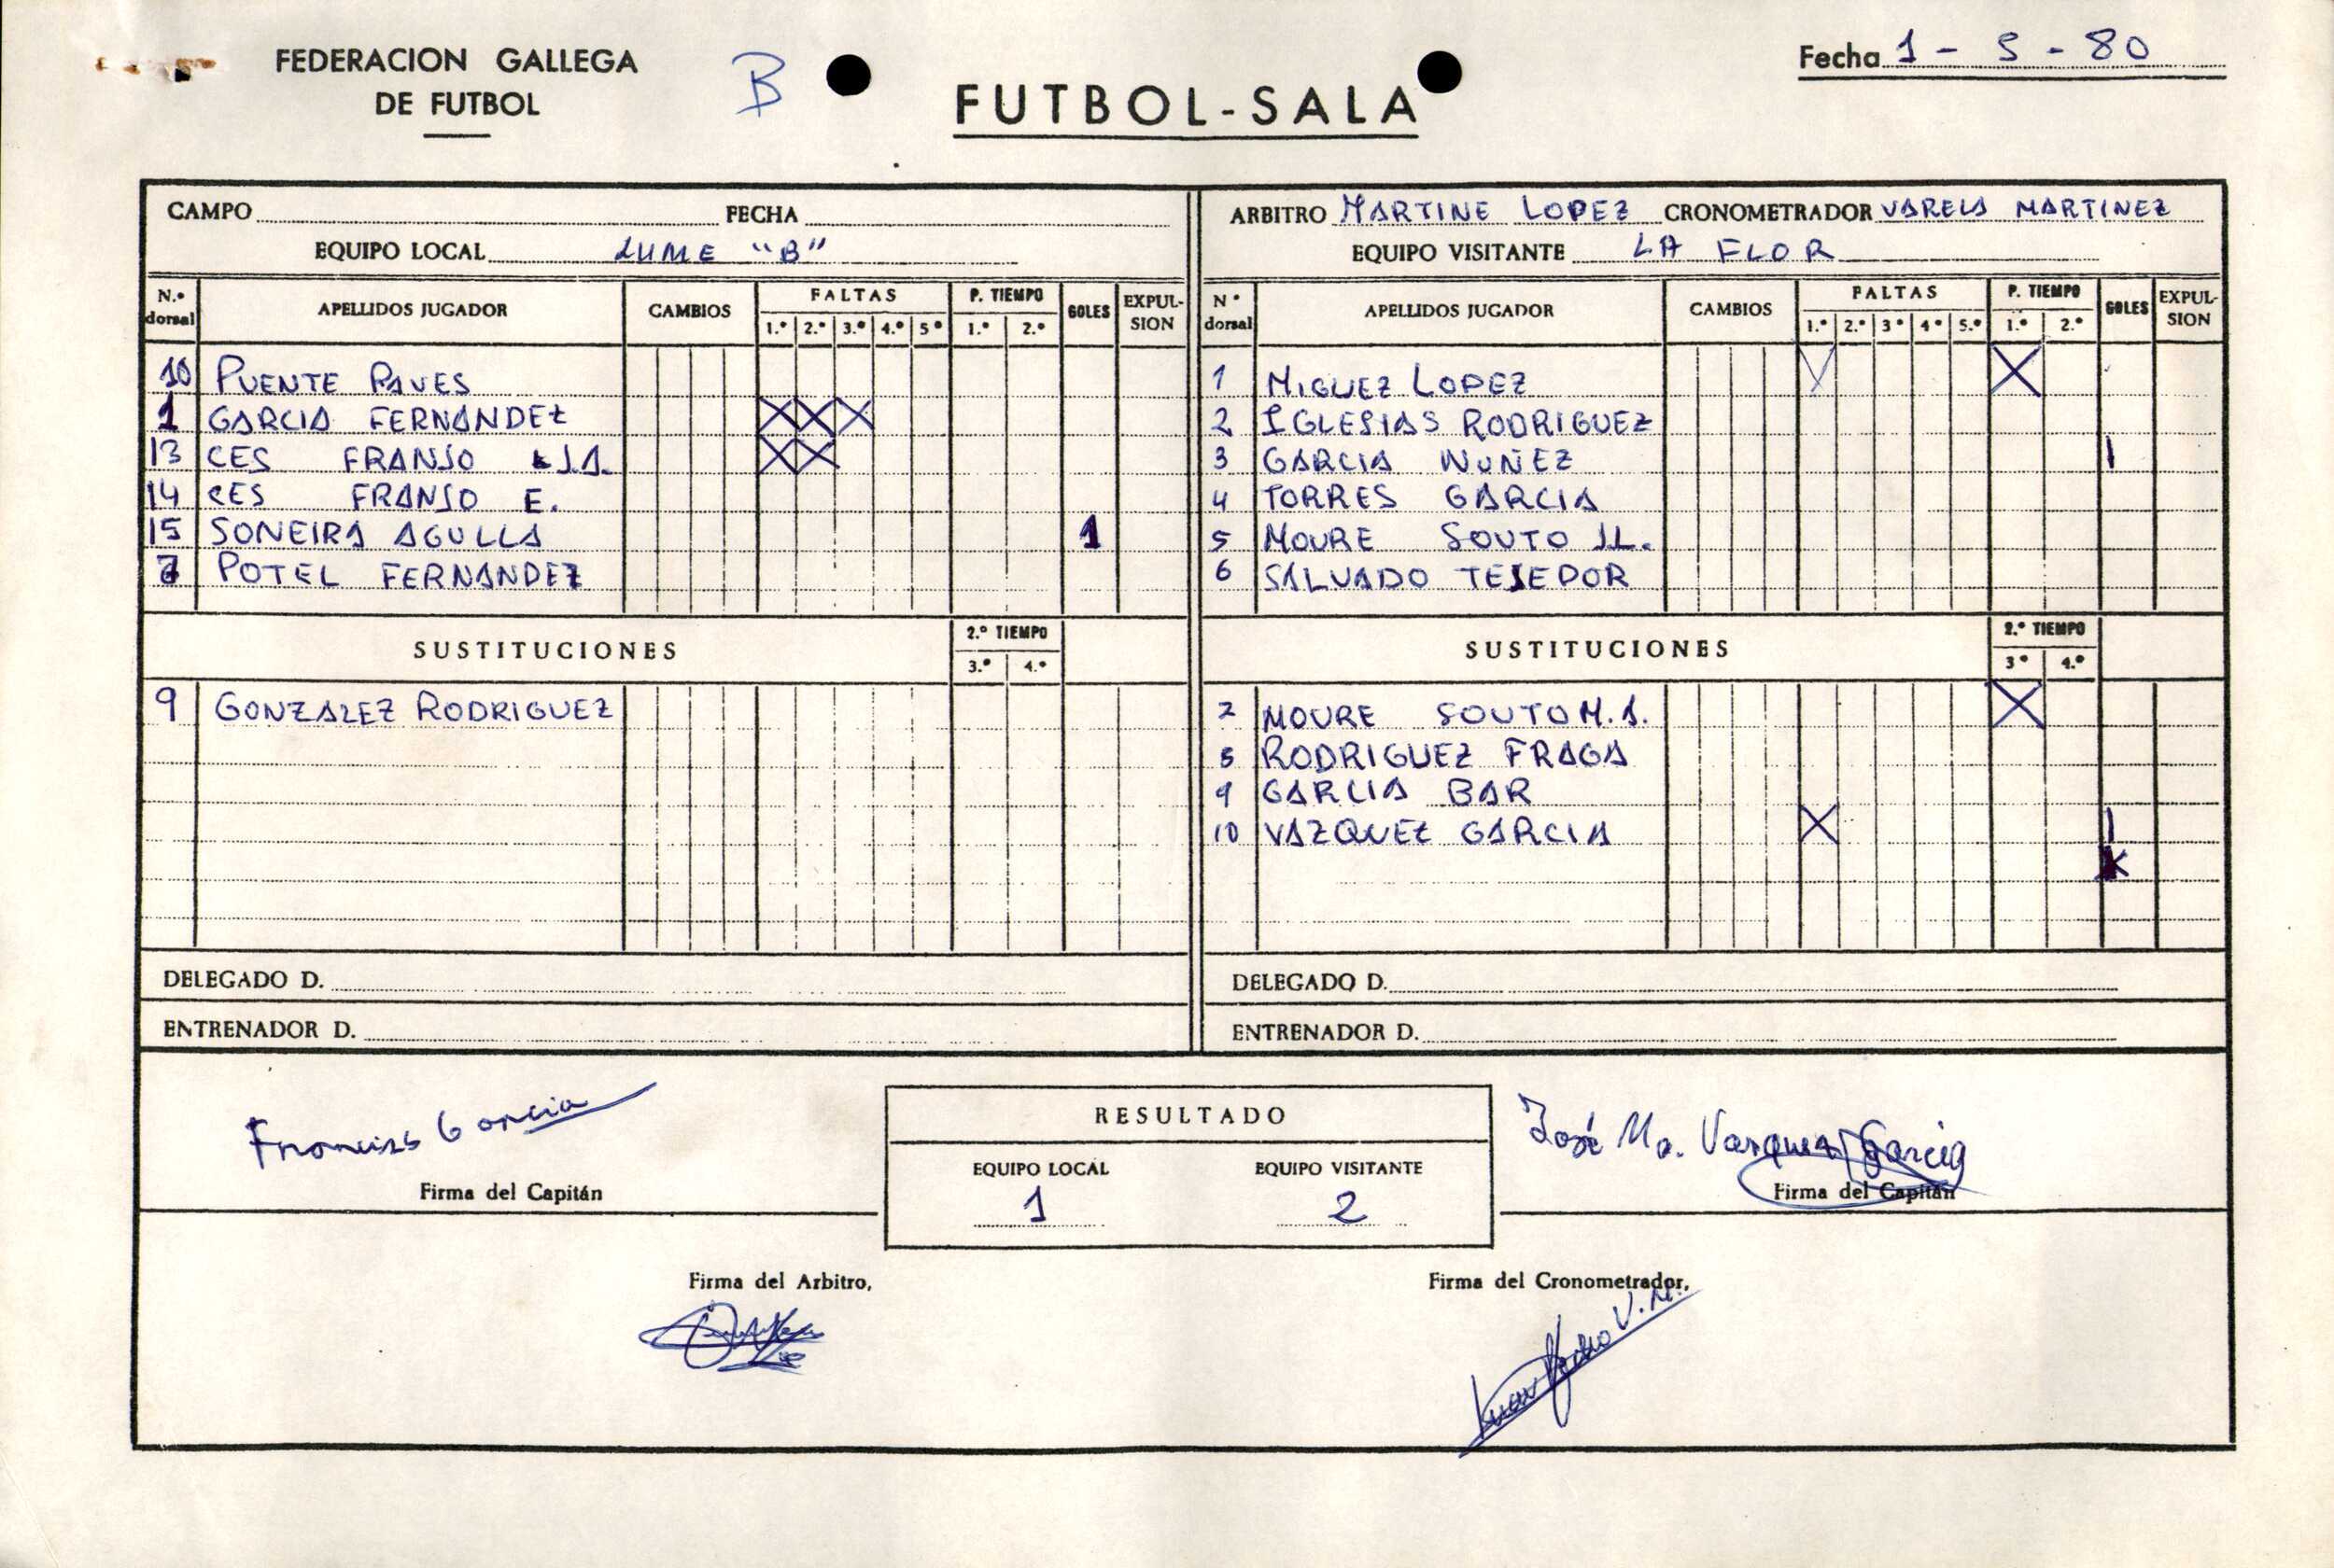 FEDERACION GALLEGA
DE FUTBOL
B
FUTBOL-SALA
Fecha 1 - 5 - 80
CAMPO FECHA
EQUIPO LOCAL LUME "B"
ARBITRO MARTINE LOPEZ CRONOMETRADOR VARELA MARTINEZ
EQUIPO VISITANTE LA FLOR
N.º dorsal APELLIDOS JUGADOR CAMBIOS FALTAS 1.º 2.º 3.º 4.º 5º P. TIEMPO 1.º 2.º GOLES EXPUL-SION
10 PUENTE PAVES
1 GARCIA FERNANDEZ X X X
13 CES FRANJO J.A. X X
14 CES FRANJO E.
15 SONEIRA AGULLA 1
7 POTEL FERNANDEZ
SUSTITUCIONES 2.º TIEMPO 3.º 4.º
9 GONZALEZ RODRIGUEZ
DELEGADO D.
ENTRENADOR D.
Nº dorsal APELLIDOS JUGADOR CAMBIOS FALTAS 1.º 2.º 3º 4º 5.º P. TIEMPO 1.º 2.º GOLES EXPUL-SION
1 MIGUEZ LOPEZ V X
2 IGLESIAS RODRIGUEZ
3 GARCIA NUÑEZ I
4 TORRES GARCIA
5 MOURE SOUTO J.L.
6 SALVADO TEJEDOR
SUSTITUCIONES 2.º TIEMPO 3º 4.º
7 MOURE SOUTO M.A. X
8 RODRIGUEZ FRAGA
9 GARCIA BAR
10 VAZQUEZ GARCIA X I
DELEGADO D.
ENTRENADOR D.
Francisco Garcia
Firma del Capitán
RESULTADO
EQUIPO LOCAL EQUIPO VISITANTE
1 2
José Ma. Vazquez Garcia
Firma del Capitán
Firma del Arbitro,
Firma del Cronometrador,
V.M.